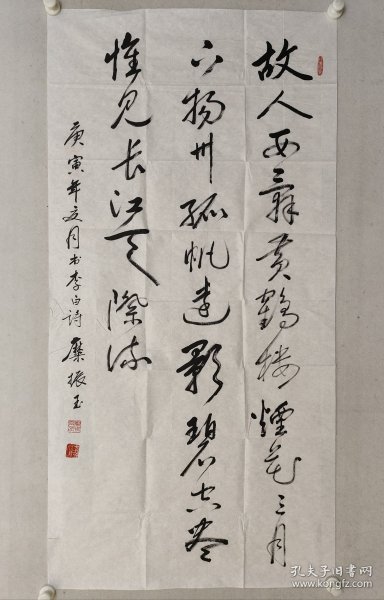 故人西辞黄鹤楼烟花三月
下扬州孤帆远影碧空尽
惟见长江天际流
庚寅年之月书李白诗 糜振玉
孔夫子旧书网